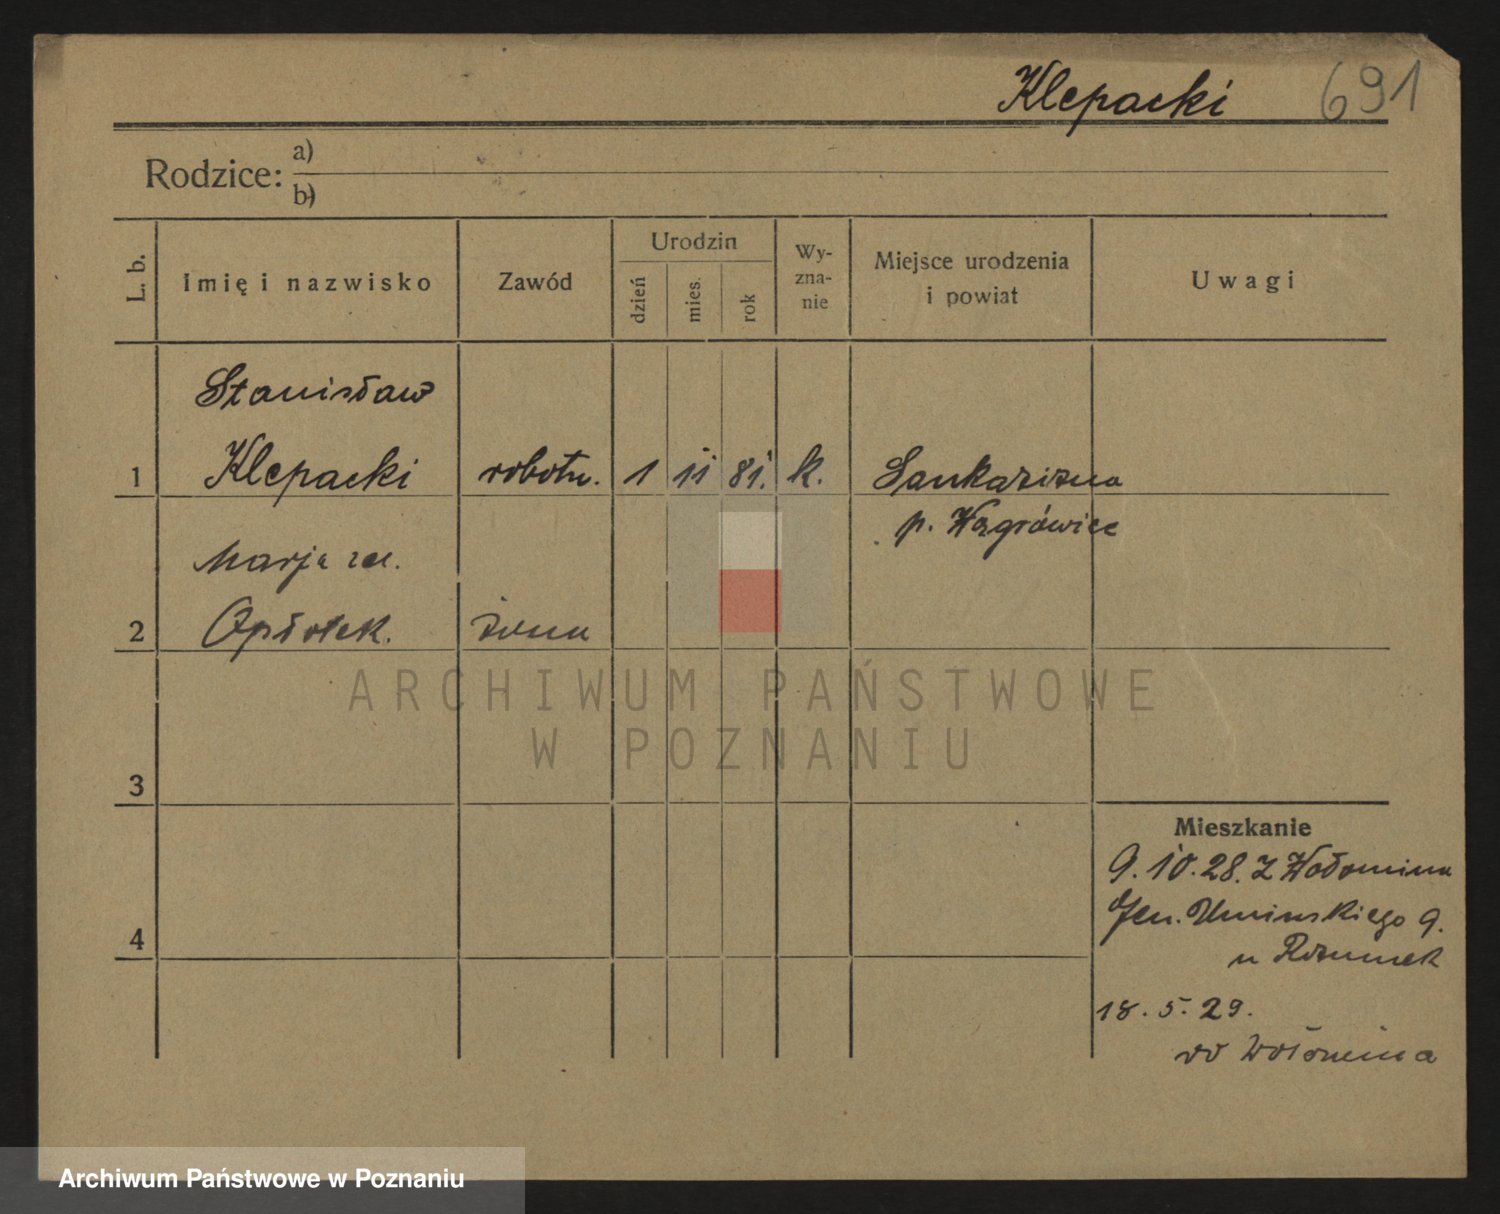 Klepacki 691
Rodzice: a)
b)
L. b.
Imię i nazwisko
Zawód
Urodzin
dzień
mies.
rok
Wy-
zna-
nie
Miejsce urodzenia
i powiat
Uwagi
Stanisław
1 Klepacki robotn. 1 11 81. k.
p. Wągrówiec
Marja
2 Opłotek. żona
3
4
Mieszkanie
9. 10. 28. z Wołomina
Gen. Umińskiego 9.
u
18. 5. 29.
do Wołomina
ARCHIWUM PAŃSTWOWE
W POZNANIU
Archiwum Państwowe w Poznaniu